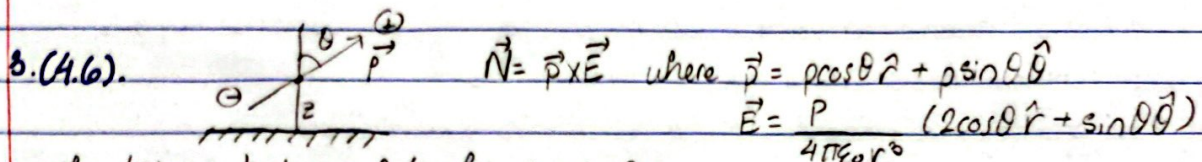 3.(4.6). θ ⊕ p⃗ ⊖ z N⃗ = p⃗×E⃗ where p⃗ = pcosθ r̂ + psinθ θ̂
E⃗ = p/4πε₀r³ (2cosθ r̂ + sinθ θ̂)